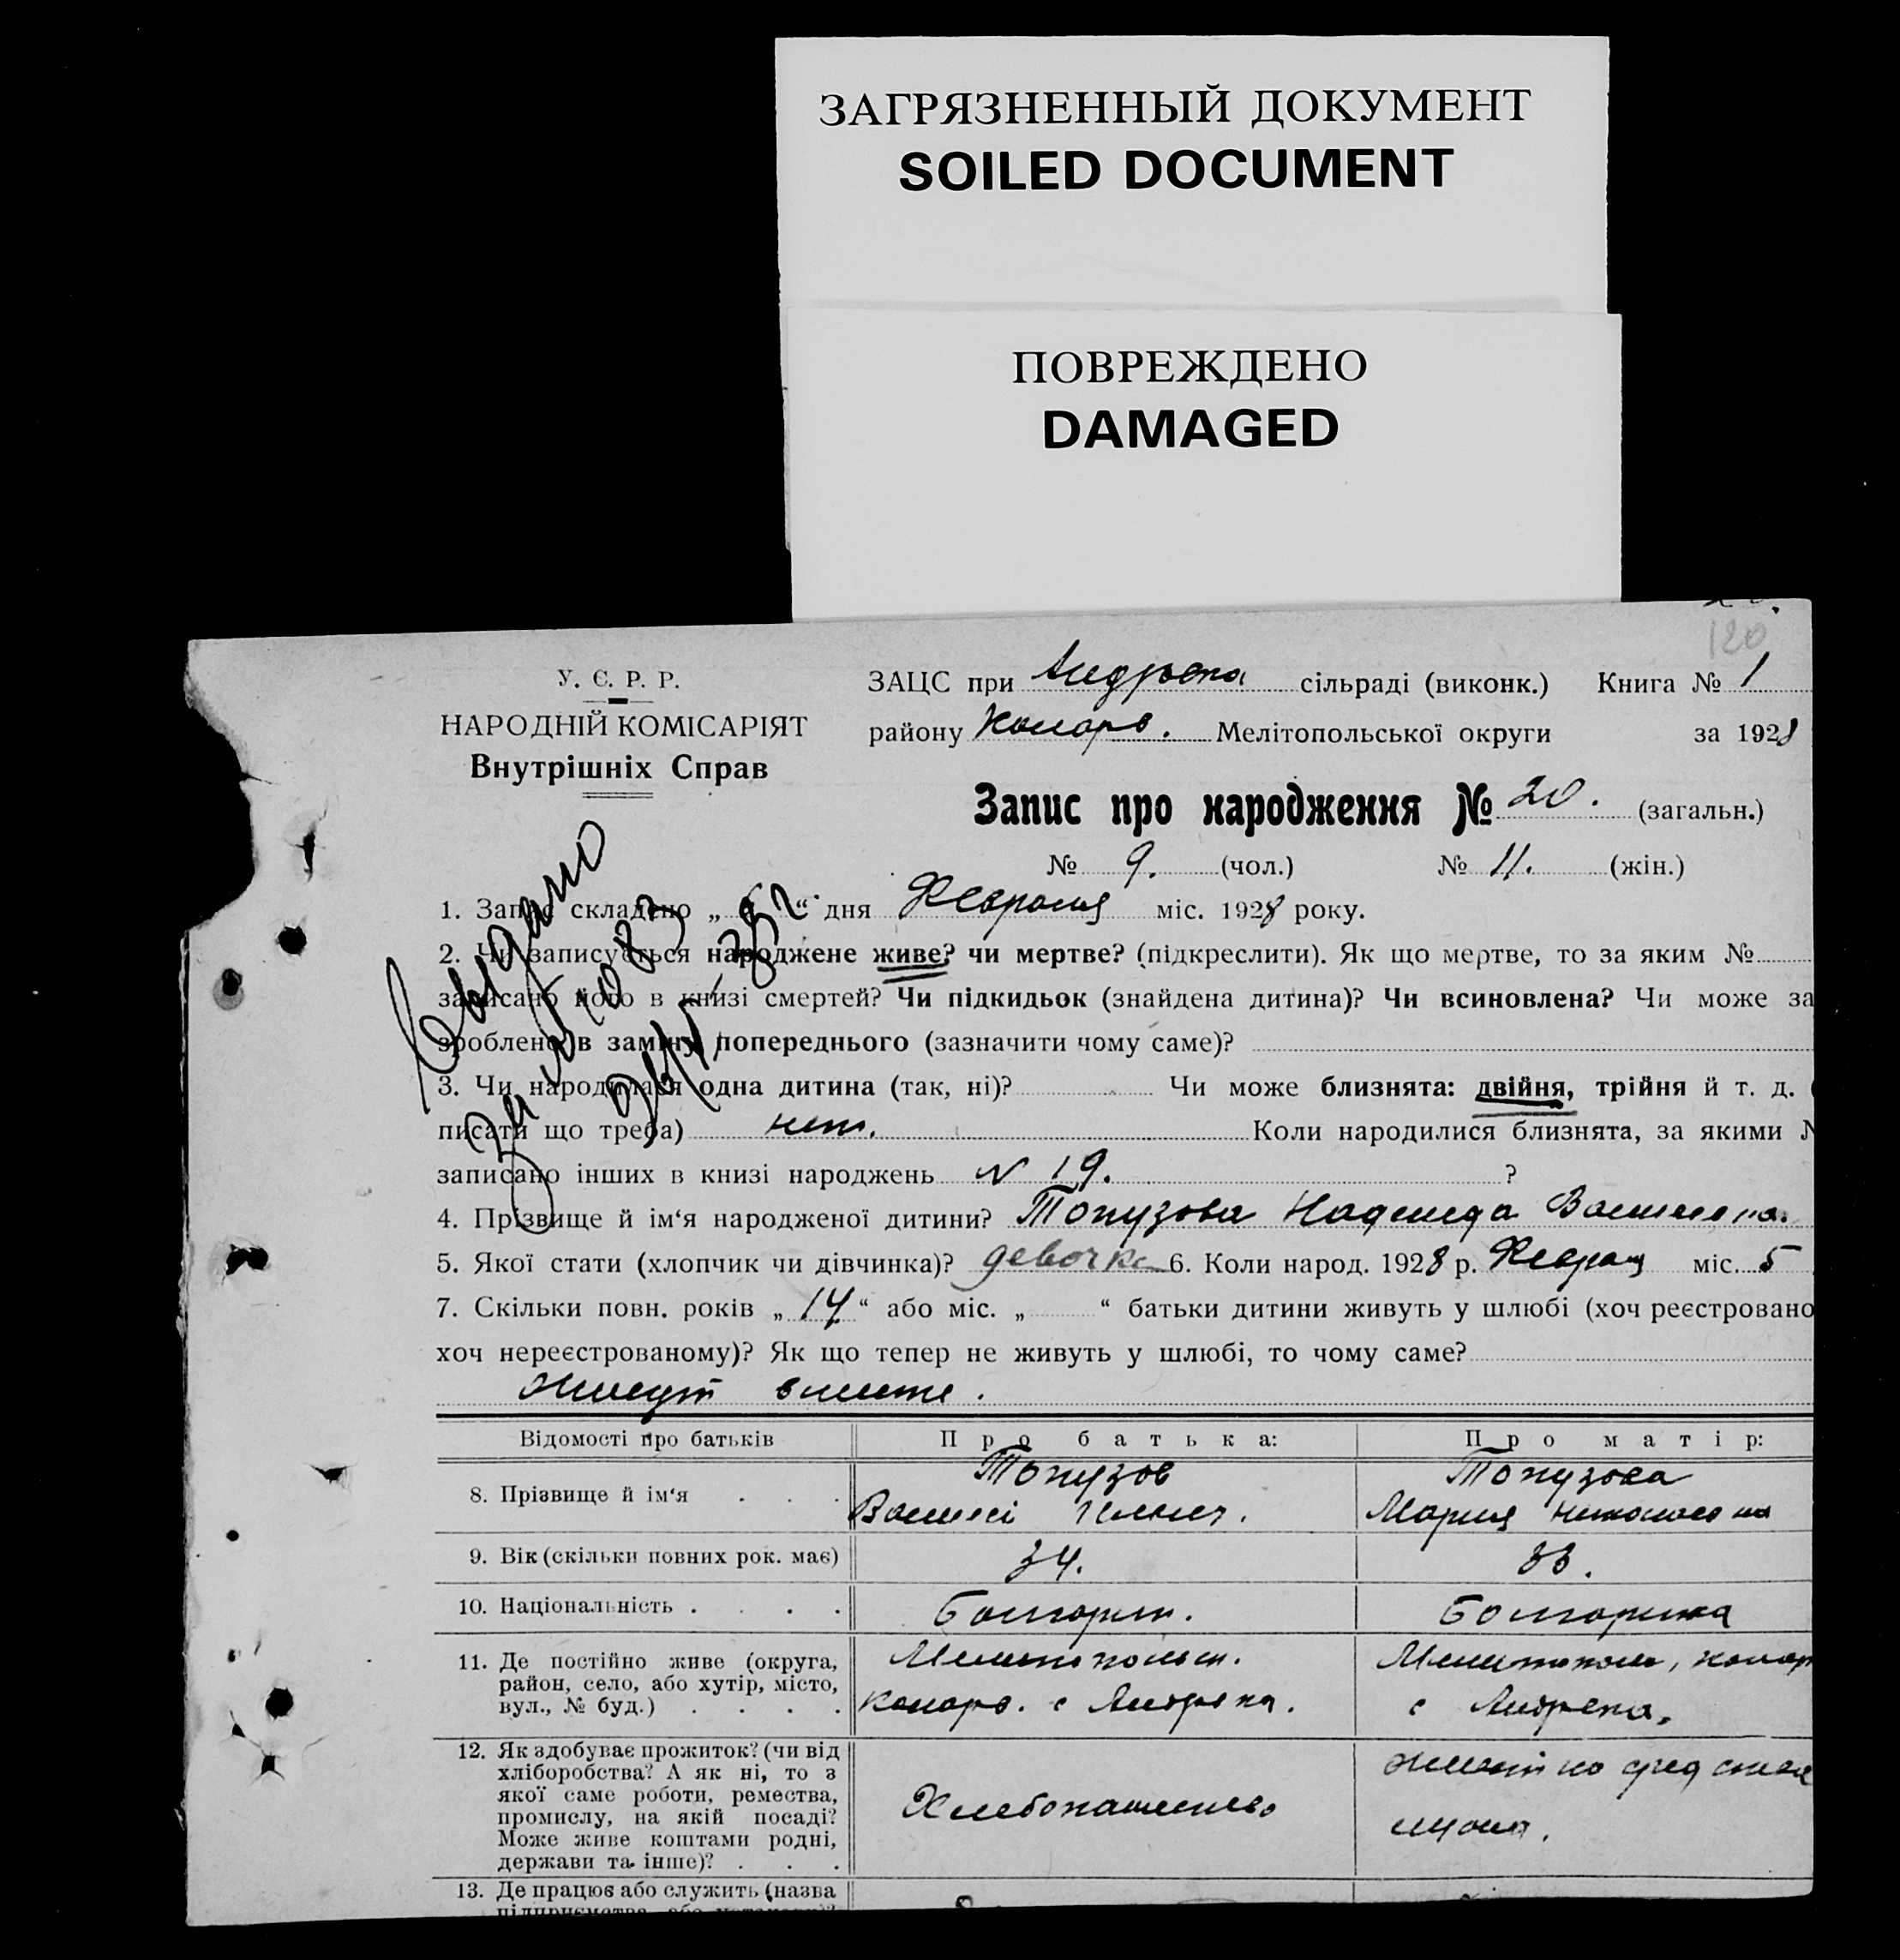 ЗАГРЯЗНЕННЫЙ ДОКУМЕНТ
SOILED DOCUMENT
ПОВРЕЖДЕНО
DAMAGED
120
У. С. Р. Р.
НАРОДНІЙ КОМІСАРІЯТ
Внутрішніх Справ
ЗАЦС при Андровка сільраді (виконк.) Книга № 1
району Коларо. Мелітопольської округи за 1928
Запис про народження № 20. (загальн.)
№ 9. (чол.) № 11. (жін.)
Выдано
1. Запис складено „ “ дня Февраля міс. 1928 року.
2. Чи записується народжене живе? чи мертве? (підкреслити). Як що мертве, то за яким №
записано його в книзі смертей? Чи підкидьок (знайдена дитина)? Чи всиновлена? Чи може за
зроблено в заміну попереднього (зазначити чому саме)?
3. Чи народилася одна дитина (так, ні)? Чи може близнята: двійня, трійня й т. д. (
писати що треба) нет. Коли народилися близнята, за якими №
записано інших в книзі народжень № 19. ?
4. Прізвище й ім‘я народженої дитини? Топузова Надежда Васильевна.
5. Якої стати (хлопчик чи дівчинка)? девочка 6. Коли народ. 1928 р. Февраля міс. 5
7. Скільки повн. років „ 14 “ або міс. „ “ батьки дитини живуть у шлюбі (хоч реєстровано
хоч нереєстрованому)? Як що тепер не живуть у шлюбі, то чому саме?
Живут вместе.
Відомості про батьків Про батька: Про матір:
8. Прізвище й ім‘я . . . Топузов Топузова
Василий Ильич. Мария Николаевна
9. Вік (скільки повних рок. має) 34. 33.
10. Національність . . . . Болгарин. Болгарка
11. Де постійно живе (округа, район, село, або хутір, місто, вул., № буд.) . . . .
Мелитопольск. Мелитополь, колар
Коларо. с Андровка. с Андровка.
12. Як здобуває прожиток? (чи від хліборобства? А як ні, то з якої саме роботи, ремества, промислу, на якій посаді? Може живе коштами родні, держави та інше)? . . .
Хлебопашество
живет на средства
мужа.
13. Де працює або служить (назва